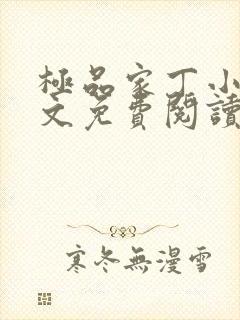 極品家丁小
文免費閱讀
寒冬無漫雪